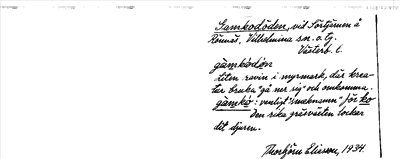 Gamkodöden, vid Törtjärnen å
Rönnäs, Vilhelmina sn. o. tg.
Västerb. l.
gàmkòdön
liten ravin i myrmark, där krea-
tur bruka "gå ner sig" och omkomma.
gàmkò: vanligt "smeknamn" för ko
Den rika gräsväxten lockar
dit djuren.
Thorbjörn Eliasson, 1934.